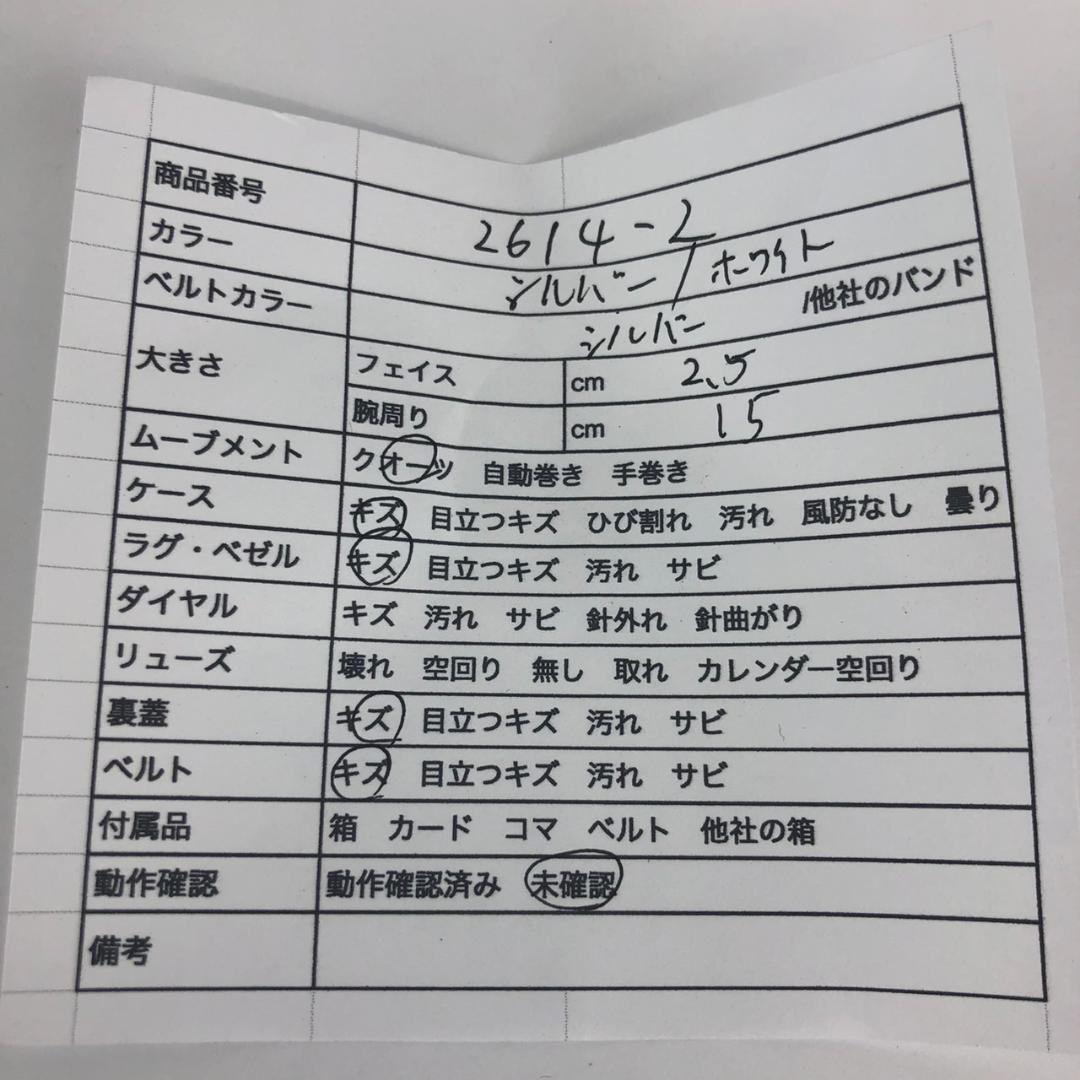 商品番号 2614-2
カラー シルバー/ホワイト
ベルトカラー シルバー /他社のバンド
大きさ フェイス cm 2.5
腕周り cm 15
ムーブメント クオーツ 自動巻き 手巻き
ケース キズ 目立つキズ ひび割れ 汚れ 風防なし 曇り
ラグ・ベゼル キズ 目立つキズ 汚れ サビ
ダイヤル キズ 汚れ サビ 針外れ 針曲がり
リューズ 壊れ 空回り 無し 取れ カレンダー空回り
裏蓋 キズ 目立つキズ 汚れ サビ
ベルト キズ 目立つキズ 汚れ サビ
付属品 箱 カード コマ ベルト 他社の箱
動作確認 動作確認済み 未確認
備考